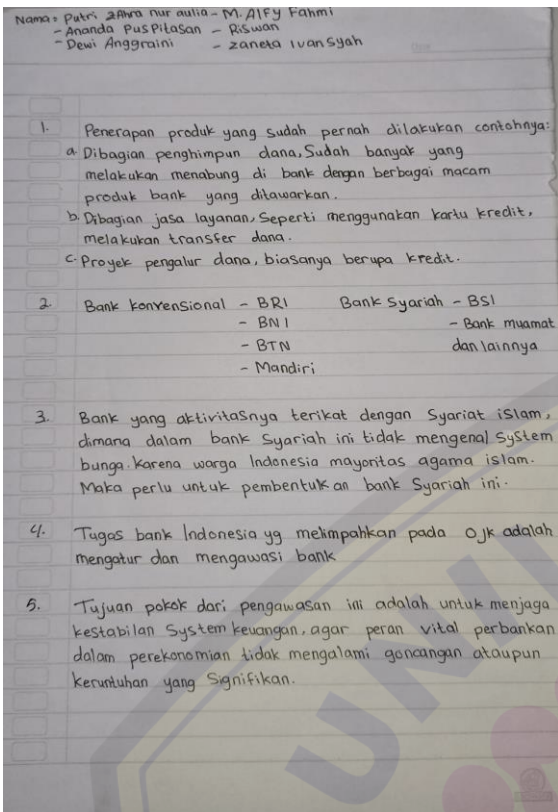 Nama: Putri Zahra nur aulia - M. Alfy Fahmi
- Ananda Puspitasari - Riswan
- Dewi Anggraini - Zaneta Ivansyah
1. Penerapan produk yang sudah pernah dilakukan contohnya:
a. Dibagian penghimpun dana, Sudah banyak yang
melakukan menabung di bank dengan berbagai macam
produk bank yang ditawarkan.
b. Dibagian jasa layanan, Seperti menggunakan kartu kredit,
melakukan transfer dana.
c. Proyek pengalur dana, biasanya berupa kredit.
2. Bank konvensional - BRI Bank Syariah - BSI
- BNI - Bank muamat
- BTN dan lainnya
- Mandiri
3. Bank yang aktivitasnya terikat dengan Syariat islam,
dimana dalam bank Syariah ini tidak mengenal System
bunga. Karena warga Indonesia mayoritas agama islam.
Maka perlu untuk pembentukan bank Syariah ini.
4. Tugas bank Indonesia yg melimpahkan pada OJK adalah
mengatur dan mengawasi bank
5. Tujuan pokok dari pengawasan ini adalah untuk menjaga
kestabilan System keuangan, agar peran vital perbankan
dalam perekonomian tidak mengalami goncangan ataupun
keruntuhan yang Signifikan.